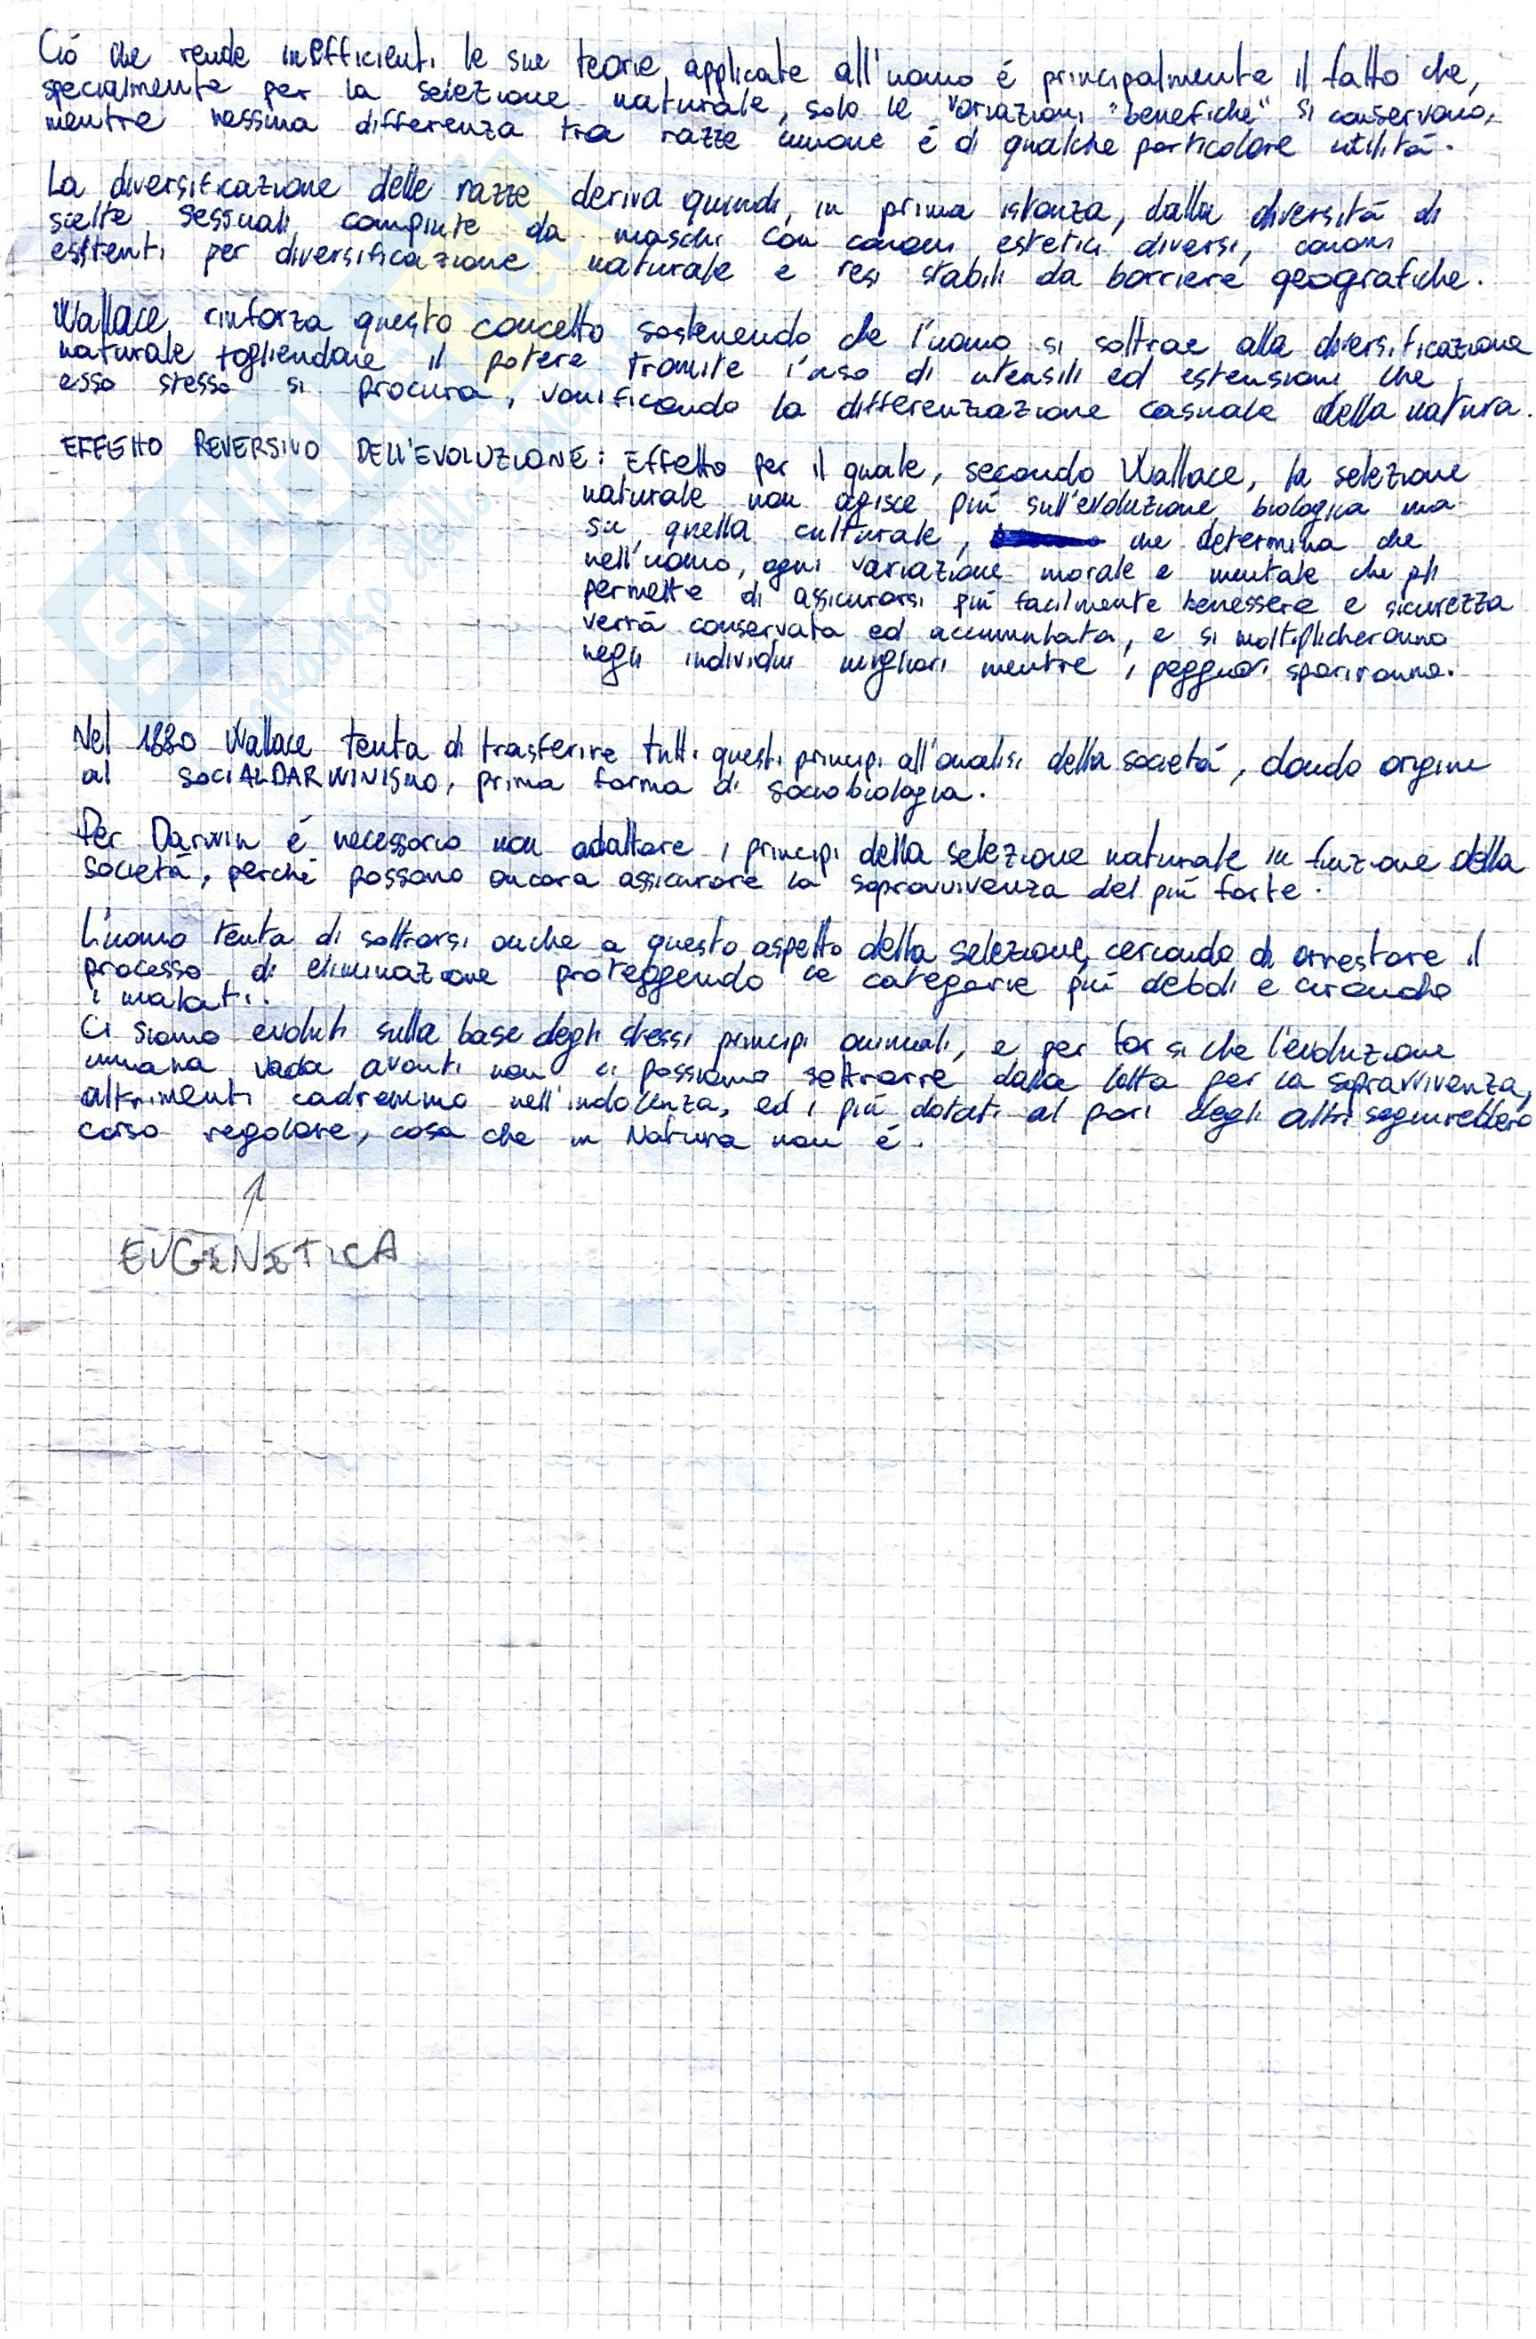 Ció che rende inefficienti le sue teorie applicate all'uomo é principalmente il fatto che,
specialmente per la selezione naturale, solo le variazioni "benefiche" si conservano,
mentre nessuna differenza tra razze umane é di qualche particolare utilitá.
La diversificazione delle razze deriva quindi, in prima istanza, dalla diversitá di
scelte sessuali compiute da maschi con canoni estetici diversi, canoni
esistenti per diversificazione naturale e resi stabili da barriere geografiche.
Wallace rinforza questo concetto sostenendo che l'uomo si sottrae alla diversificazione
naturale togliendone il potere tramite l'uso di utensili ed estensioni che
esso stesso si procura, vanificando la differenziazione casuale della natura.
EFFETTO REVERSIVO DELL'EVOLUZIONE: Effetto per il quale, secondo Wallace, la selezione
naturale non agisce piú sull'evoluzione biologica ma
su quella culturale, che determina che
nell'uomo, ogni variazione morale e mentale che gli
permette di assicurarsi piú facilmente benessere e sicurezza
verrá conservata ed accumulata, e si moltiplicheranno
negli individui migliori mentre i peggiori spariranno.
Nel 1880 Wallace tenta di trasferire tutti questi principi all'analisi della societá, dando origine
al SOCIALDARWINISMO, prima forma di sociobiologia.
Per Darwin é necessario non adattare i principi della selezione naturale in funzione della
societá, perché possano ancora assicurare la sopravvivenza del piú forte.
L'uomo tenta di sottrarsi anche a questo aspetto della selezione, cercando di arrestare il
processo di eliminazione proteggendo le categorie piú deboli e curando
i malati.
Ci siamo evoluti sulla base degli stessi principi animali, e per far si che l'evoluzione
umana vada avanti non ci possiamo sottrarre dalla lotta per la sopravvivenza,
altrimenti cadremmo nell'indolenza, ed i piú dotati al pari degli altri seguirebbero
corso regolare, cosa che in Natura non é.
EUGENETICA